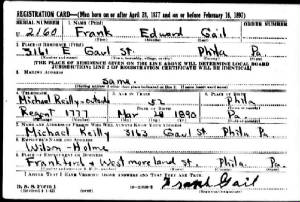 REGISTRATION CARD—(Men born on or after April 28, 1877 and on or before February 16, 1897)
SERIAL NUMBER 1. NAME (Print) ORDER NUMBER
U 2160 Frank Edward Gail
(First) (Middle) (Last)
2. PLACE OF RESIDENCE (Print)
3161 E Gaul St. Phila Pa.
(Number and street) (Town, township, village, or city) (County) (State)
[THE PLACE OF RESIDENCE GIVEN ON THE LINE ABOVE WILL DETERMINE LOCAL BOARD
JURISDICTION; LINE 2 OF REGISTRATION CERTIFICATE WILL BE IDENTICAL]
3. MAILING ADDRESS
Same.
4. TELEPHONE 5. AGE IN YEARS 6. PLACE OF BIRTH
Michael Reilly 52 Phila
DATE OF BIRTH
Regent 1777 Mar 28 1890 Pa.
7. NAME AND ADDRESS OF PERSON WHO WILL ALWAYS KNOW YOUR ADDRESS
Michael Reilly 3163 Gaul St Phila Pa.
8. EMPLOYER'S NAME AND ADDRESS
9. PLACE OF EMPLOYMENT OR BUSINESS
Westmoreland St. Phila. Pa.
I AFFIRM THAT I HAVE VERIFIED ABOVE ANSWERS AND THAT THEY ARE TRUE.
D. S. S. Form 1
Frank Gail